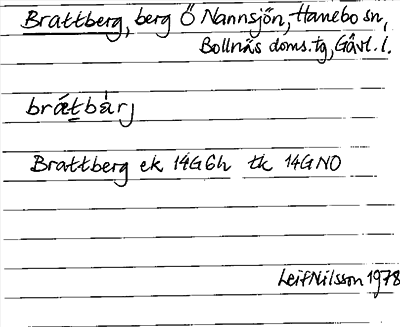 Brattberg, berg Ö Nannsjön, Hanebo sn,
Bollnäs doms. tg, Gävl. l.
brǽtbàrj
Brattberg ek 14G6h tk 14GNO
Leif Nilsson 1978